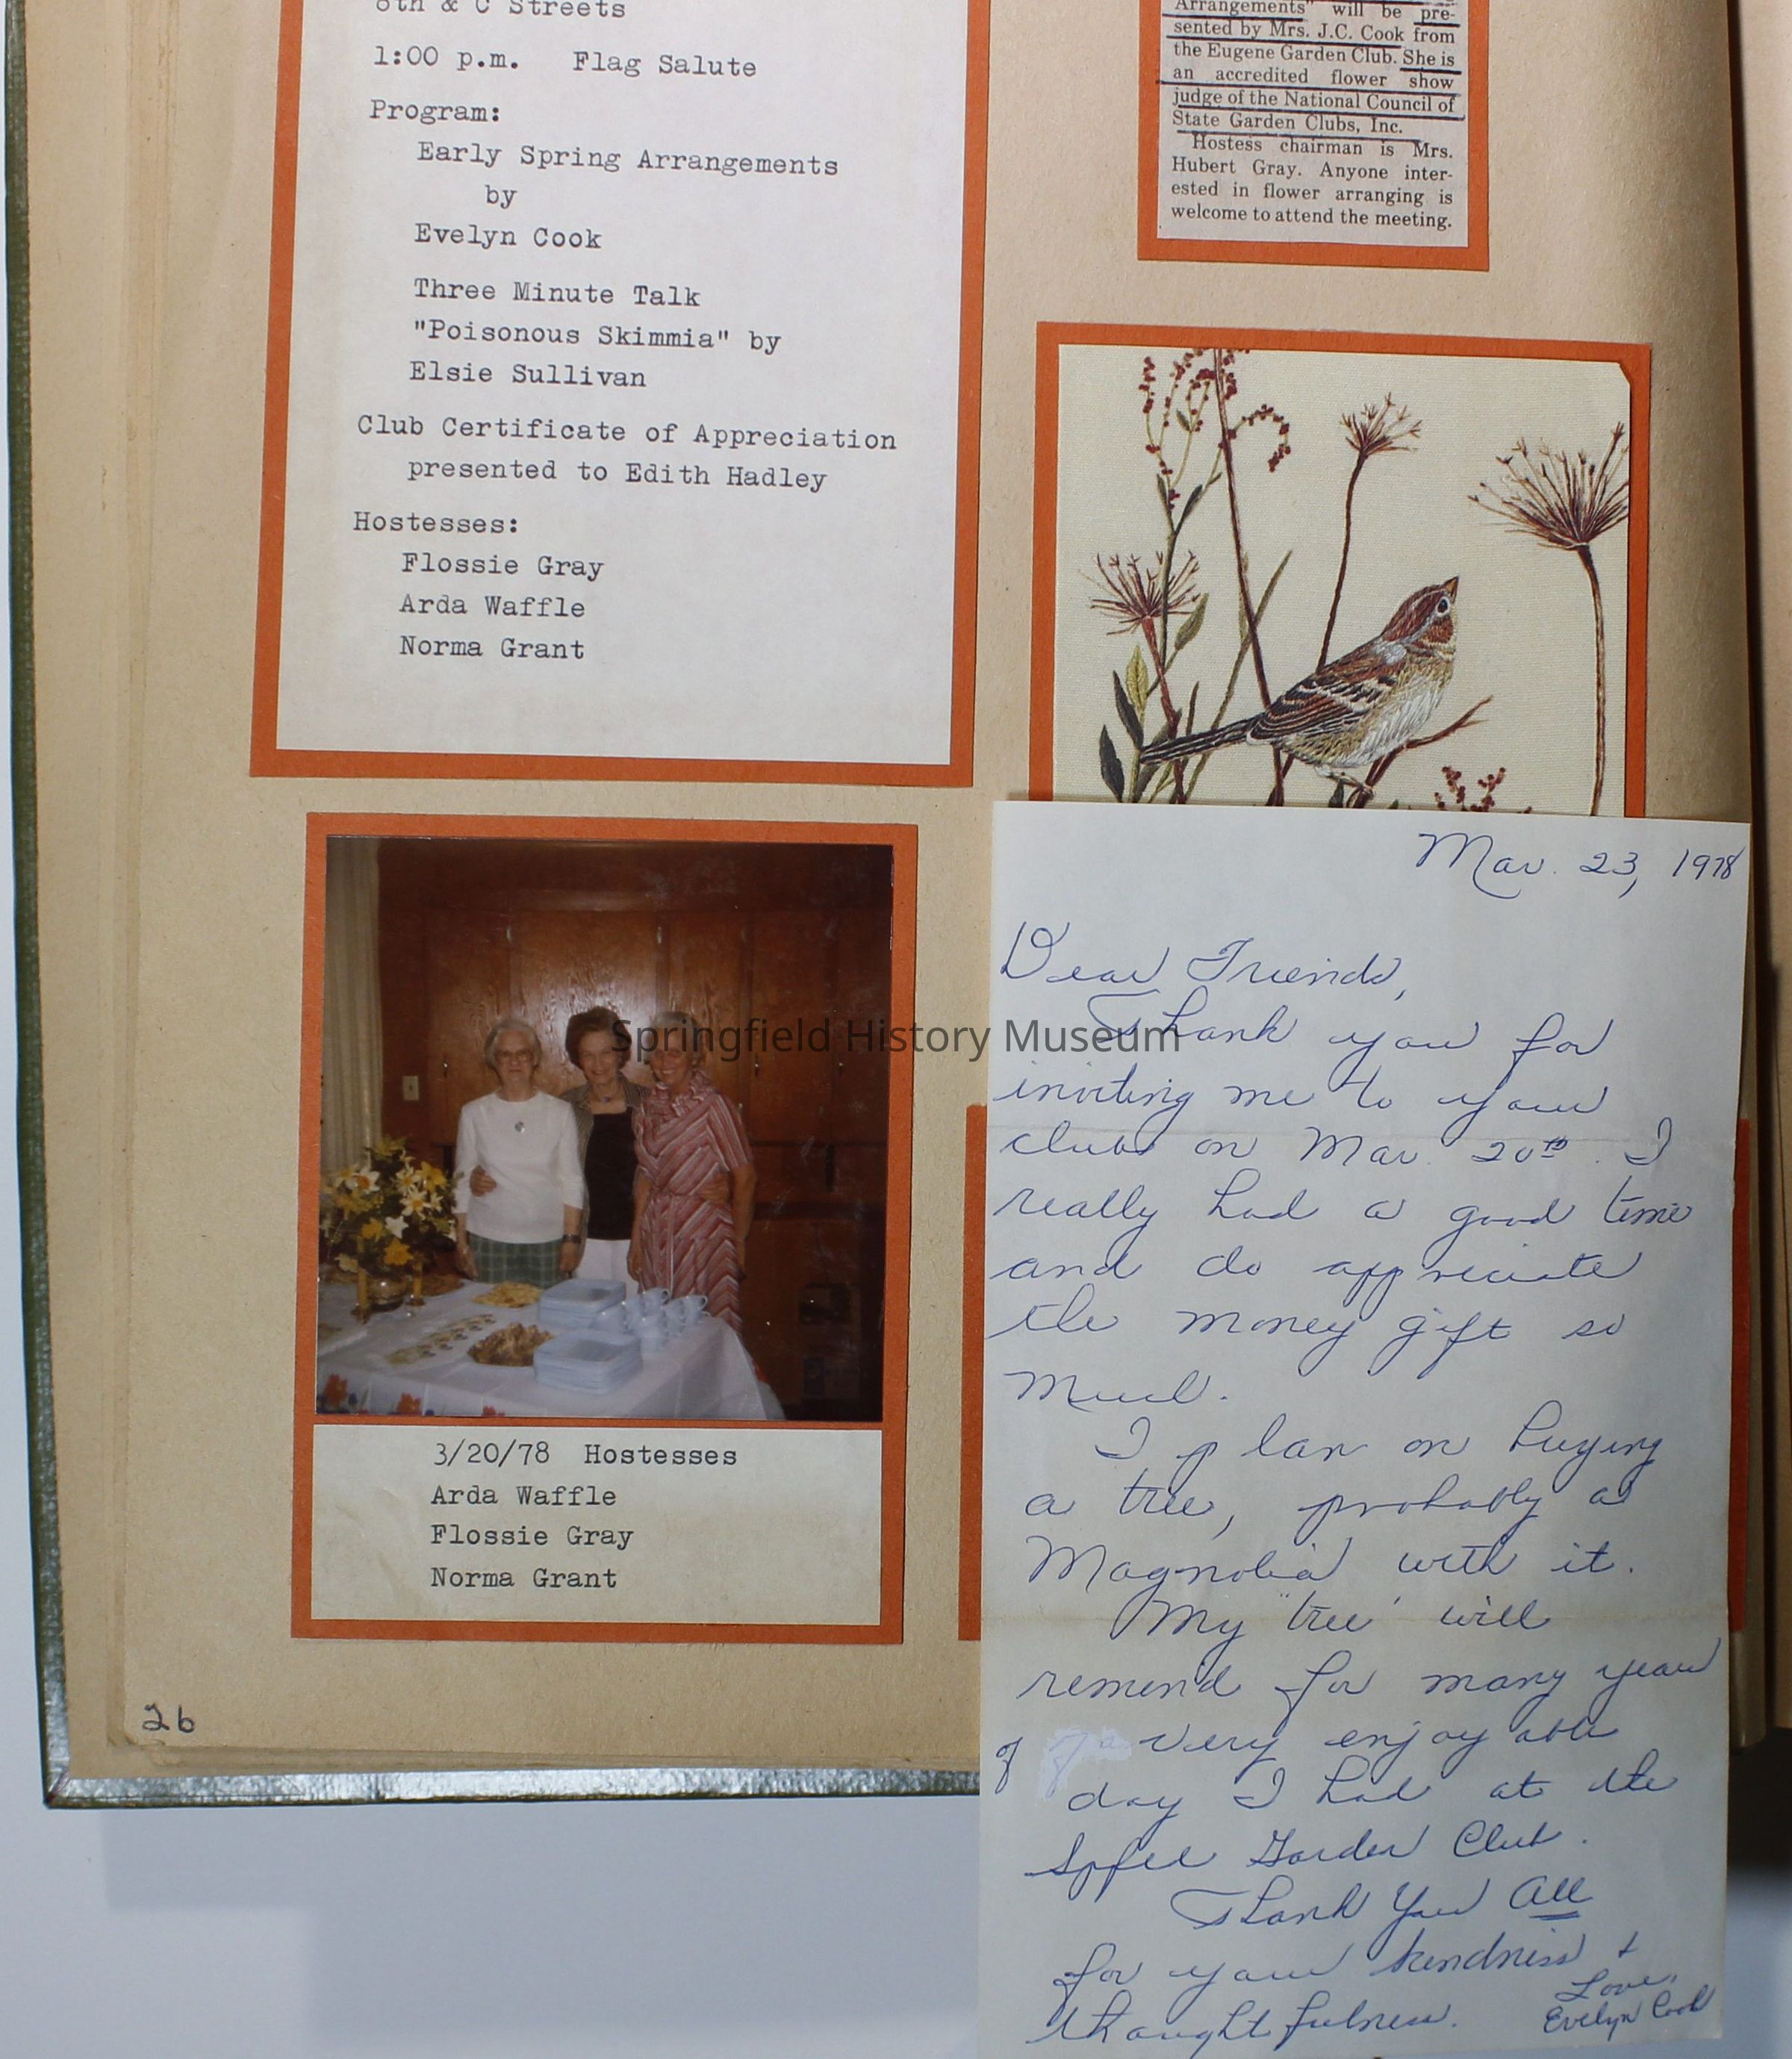 8th & C Streets
1:00 p.m. Flag Salute
Program:
Early Spring Arrangements
by
Evelyn Cook
Three Minute Talk
"Poisonous Skimmia" by
Elsie Sullivan
Club Certificate of Appreciation
presented to Edith Hadley
Hostesses:
Flossie Gray
Arda Waffle
Norma Grant
Arrangements" will be pre-
sented by Mrs. J.C. Cook from
the Eugene Garden Club. She is
an accredited flower show
judge of the National Council of
State Garden Clubs, Inc.
Hostess chairman is Mrs.
Hubert Gray. Anyone inter-
ested in flower arranging is
welcome to attend the meeting.
3/20/78 Hostesses
Arda Waffle
Flossie Gray
Norma Grant
26
Mar. 23, 1978
Dear Friends,
Thank you for
inviting me to your
club on Mar. 20th. I
really had a good time
and do appreciate
the money gift so
much.
I plan on buying
a tree, probably a
Magnolia with it.
My "tree" will
remind for many years
of a very enjoyable
day I had at the
Spfld Garden Club.
Thank You All
for your kindness +
thoughtfulness.
Love,
Evelyn Cook
Springfield History Museum